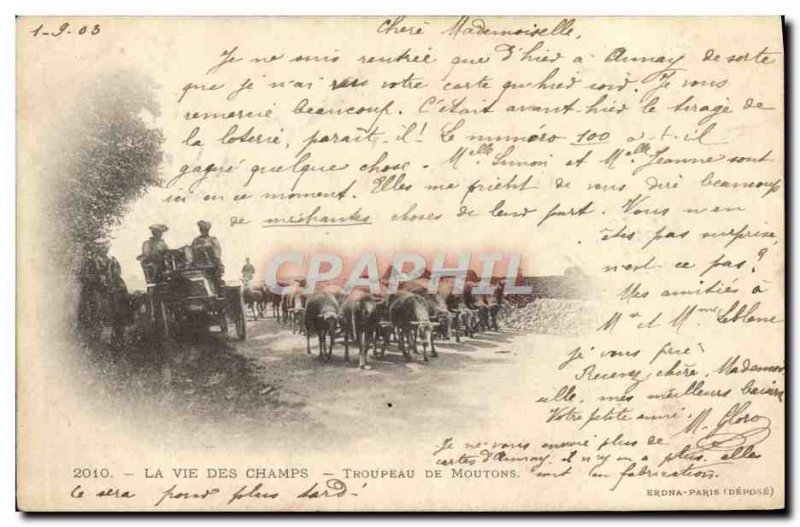 1-9-03
Cherè Mademoiselle,
Je ne suis rentrée que d'hier à Aunay de sorte
que je n'ai vu votre carte qu'hier soir. Je vous
remercie beaucoup. C'était avant hier le tirage de
la loterie, paraît-il! Le numero 100 a-t-il
gagné quelque chose. Melle Simon et Melle Jeanne sont
ici en ce moment. Elles me prient de vous dire beaucoup
de méchantes choses de leur part. Vous n'en
êtes pas surprise,
n'est-ce pas?
Mes amitiés à
Mr et Mme Leblanc
je vous prie
Recevez, chère Mademoi
selle, mes meilleurs baisers
Votre petite amie
M. Flore
Je ne vous envoie plus de
cartes d'Aunay, il n'y en a plus. elle
sont en fabrication.
CPARAMA
2010. - LA VIE DES CHAMPS - TROUPEAU DE MOUTONS.
ce sera pour plus tard.
ERDNA-PARIS (DÉPOSÉ)